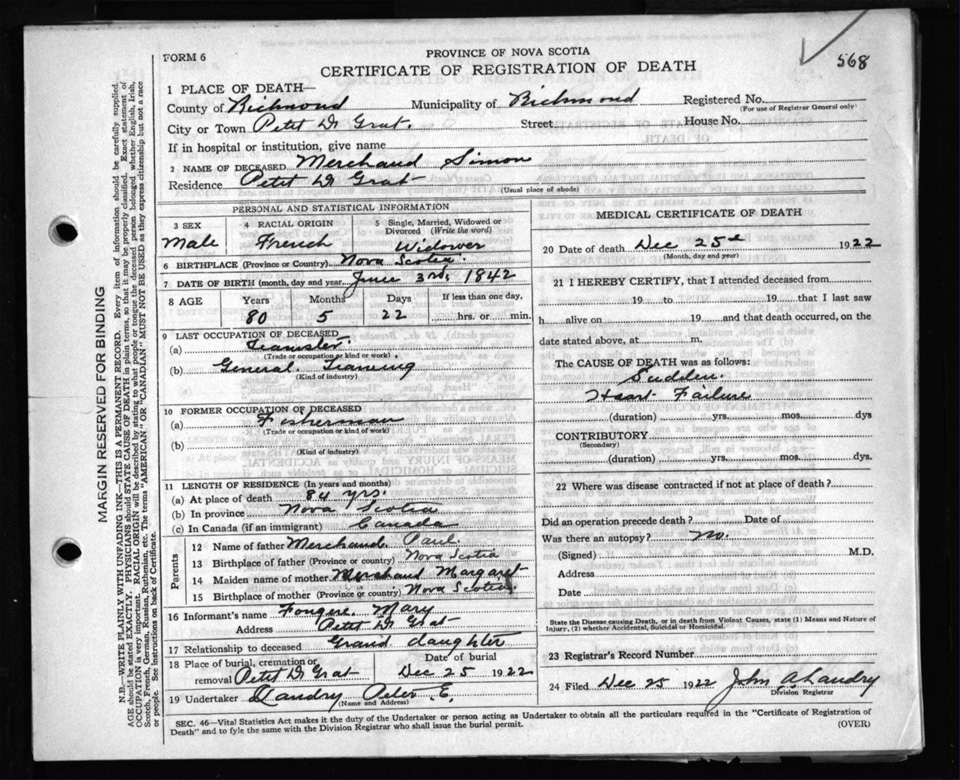 568
FORM 6
PROVINCE OF NOVA SCOTIA
CERTIFICATE OF REGISTRATION OF DEATH
1 PLACE OF DEATH—
County of Richmond Municipality of Richmond Registered No.
(For use of Registrar General only)
City or Town Petit D Grat. Street House No.
If in hospital or institution, give name
2 NAME OF DECEASED Merchand Simon
Residence Petit D Grat
(Usual place of abode)
PERSONAL AND STATISTICAL INFORMATION
3 SEX 4 RACIAL ORIGIN 5 Single, Married, Widowed or Divorced (Write the word)
Male French Widower
6 BIRTHPLACE (Province or Country) Nova Scotia.
7 DATE OF BIRTH (month, day and year) June 3rd, 1842
8 AGE Years Months Days If less than one day,
80 5 22 hrs. or min.
9 LAST OCCUPATION OF DECEASED
(a) Teamster.
(Trade or occupation or kind of work)
(b) General Teaming
(Kind of industry)
10 FORMER OCCUPATION OF DECEASED
(a) Fisherman
(Trade or occupation or kind of work)
(b)
(Kind of industry)
11 LENGTH OF RESIDENCE (In years and months)
(a) At place of death 84 yrs.
(b) In province Nova Scotia
(c) In Canada (if an immigrant) Canada
Parents
12 Name of father Merchand. Paul.
13 Birthplace of father (Province or country) Nova Scotia
14 Maiden name of mother Merchand Margaret
15 Birthplace of mother (Province or country) Nova Scotia
16 Informant's name Fougere. Mary
Address Petit D Grat
17 Relationship to deceased Grand daughter
18 Place of burial, cremation or removal Petit D Grat Date of burial Dec 25 1922
19 Undertaker Landry Peter E.
(Name and Address)
MEDICAL CERTIFICATE OF DEATH
20 Date of death Dec 25th 1922
(Month, day and year)
21 I HEREBY CERTIFY, that I attended deceased from
19 to 19 that I last saw
h alive on 19 and that death occurred, on the
date stated above, at m.
The CAUSE OF DEATH was as follows:
Sudden.
Heart Failure
(duration) yrs. mos. dys
CONTRIBUTORY
(Secondary)
(duration) yrs. mos. dys.
22 Where was disease contracted if not at place of death?
Did an operation precede death? Date of
Was there an autopsy? No.
(Signed) M.D.
Address
Date
State the Disease causing Death, or in death from Violent Causes, state (1) Means and Nature of Injury, (2) whether Accidental, Suicidal or Homicidal.
23 Registrar's Record Number
24 Filed Dec 25 1922 John A. Landry
Division Registrar
SEC. 46—Vital Statistics Act makes it the duty of the Undertaker or person acting as Undertaker to obtain all the particulars required in the "Certificate of Registration of
Death" and to fyle the same with the Division Registrar who shall issue the burial permit. (OVER)
MARGIN RESERVED FOR BINDING
N.B.—WRITE PLAINLY WITH UNFADING INK—THIS IS A PERMANENT RECORD. Every item of information should be carefully supplied.
AGE should be stated EXACTLY. PHYSICIANS should STATE CAUSE OF DEATH in plain terms, so that it may be properly classified. Exact statement of
OCCUPATION is very important. RACIAL ORIGIN will be described by stating to what people or tongue the deceased person belonged whether English, Irish,
Scotch, French, German, Russian, Ruthenian, etc. The terms "AMERICAN" OR "CANADIAN" MUST NOT BE USED as they express citizenship but not a race
or people. See instructions on back of Certificate.